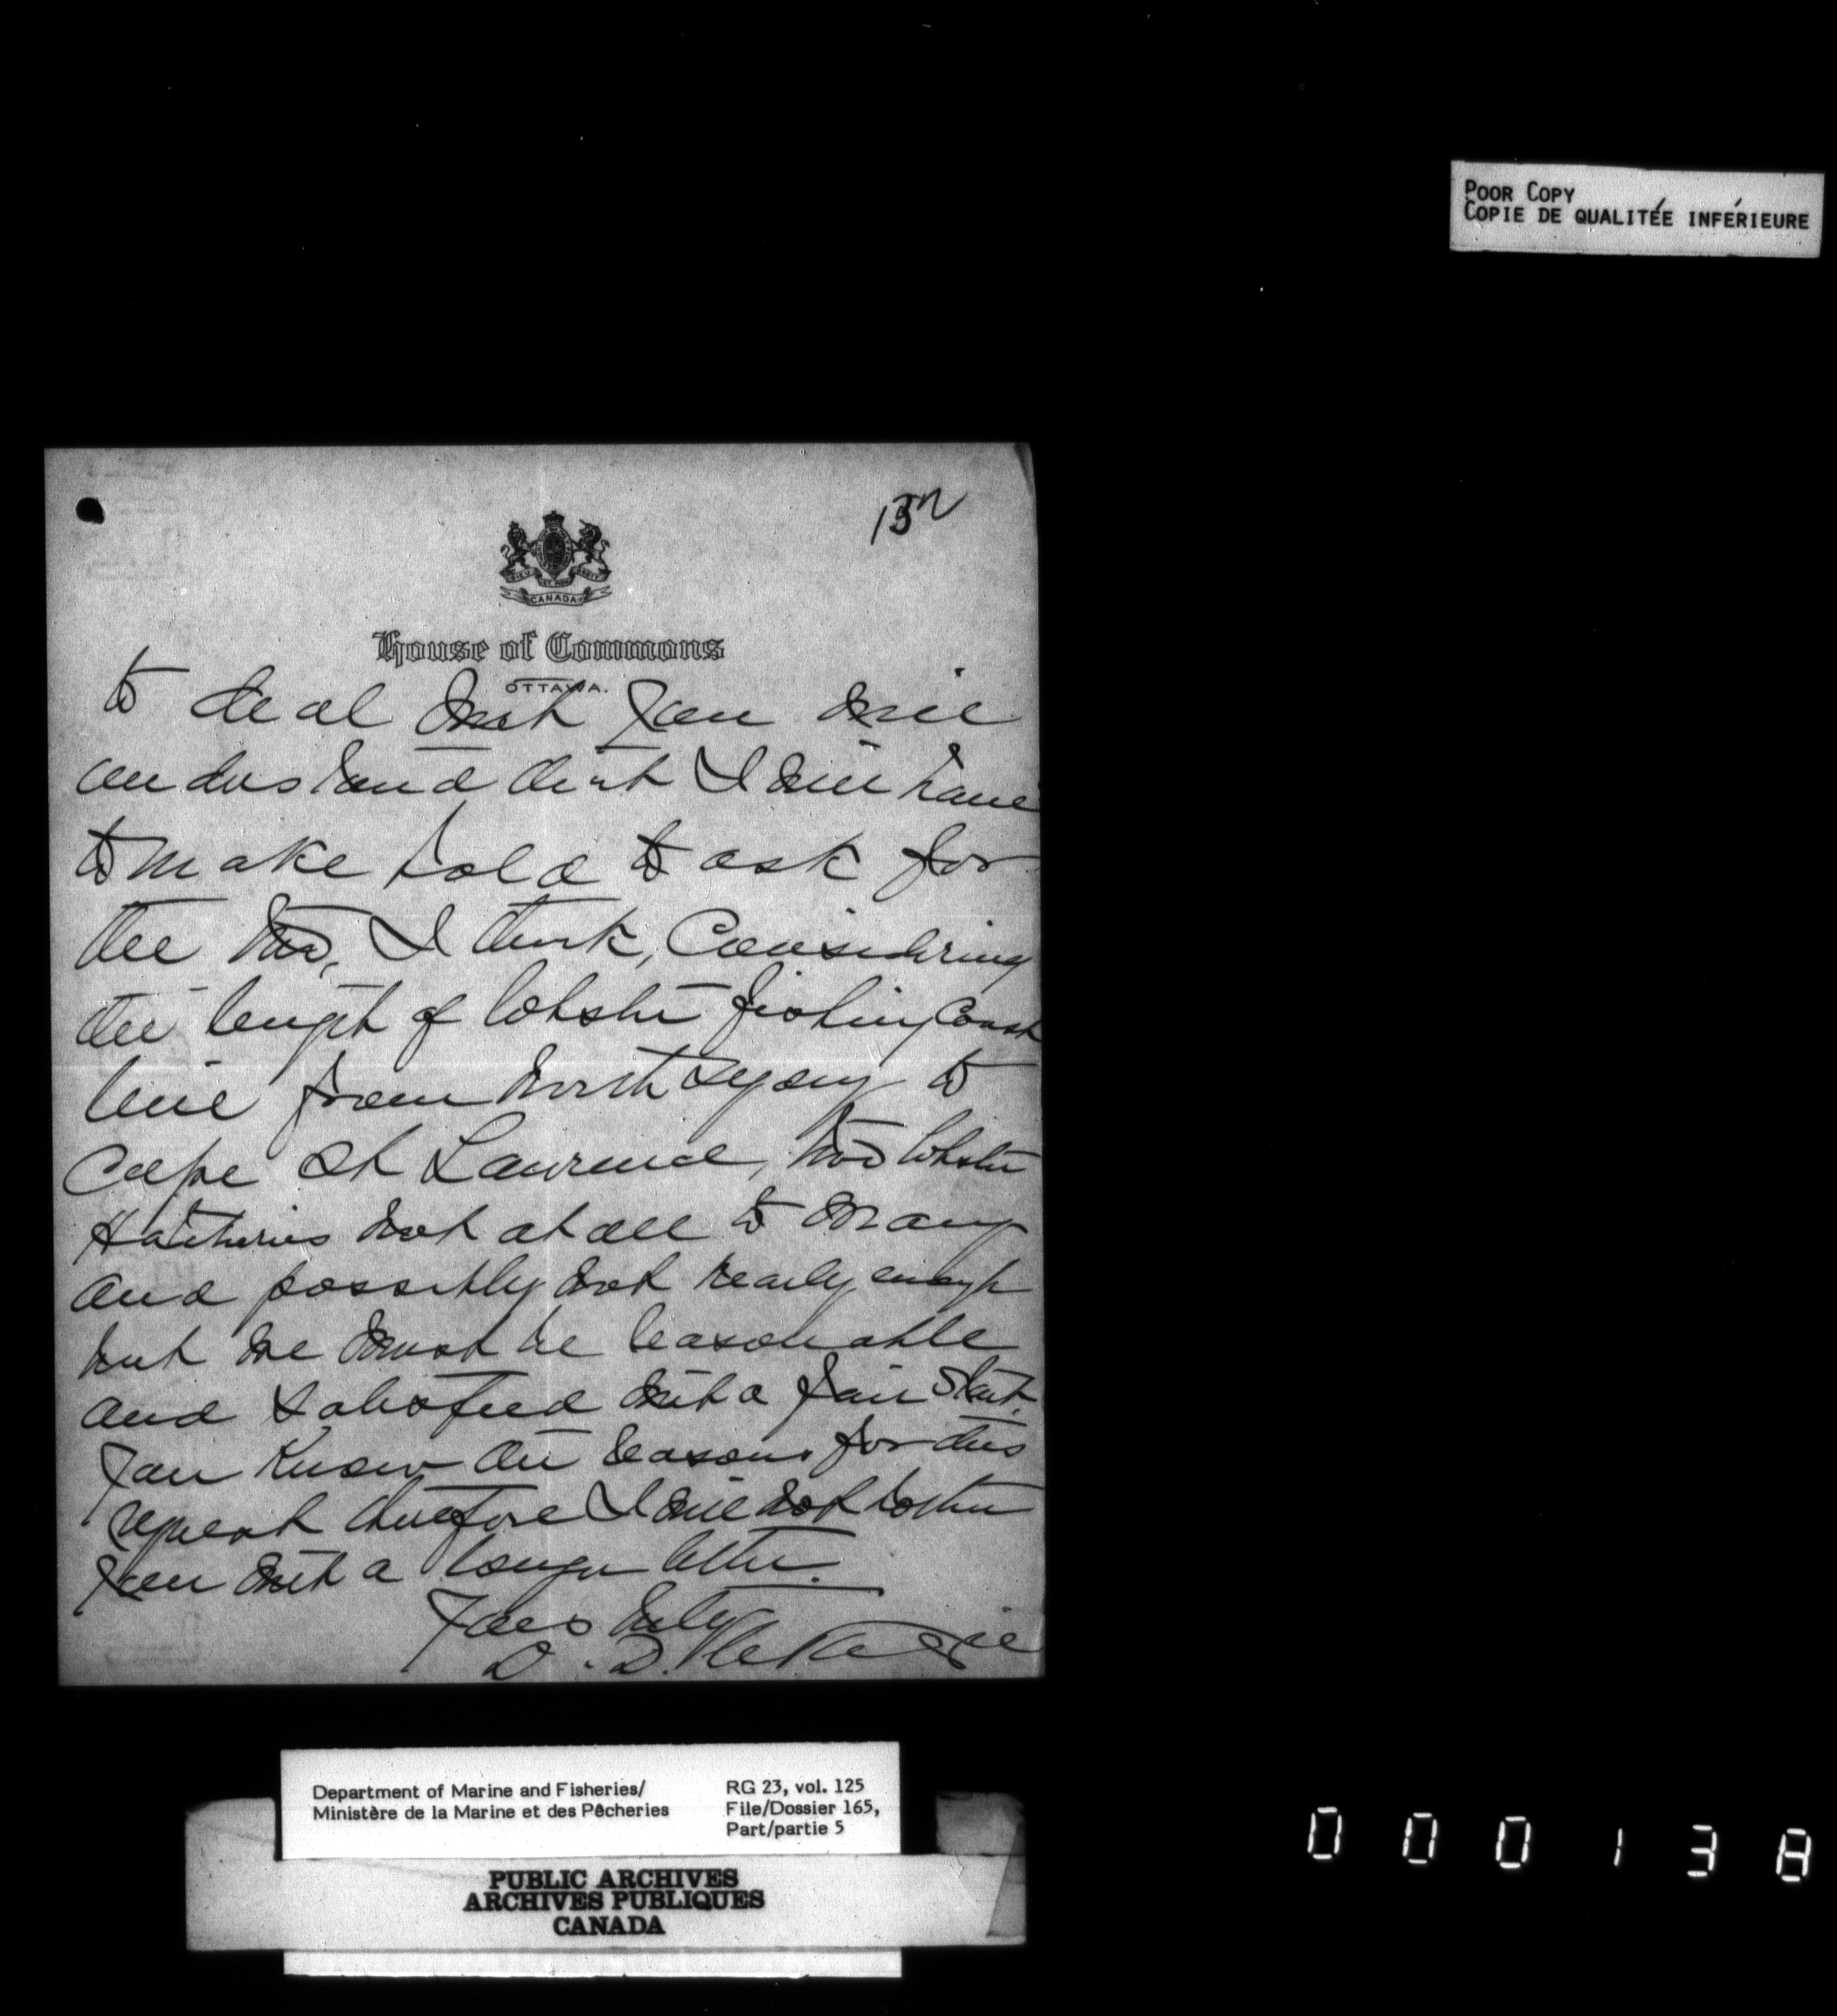 POOR COPY
COPIE DE QUALITÉE INFÉRIEURE
DIEU ET MON DROIT
CANADA
House of Commons
OTTAWA.
to deal with you will
understand that I will have
to make bold to ask for
the two, I think, Considering
the length of lobster fishing Coast
line from North Sydney to
Cape St Laurence, two lobster
Hatcheries not at all to many
and possibly not nearly enough
but we must be reasonable
and satisfied with a fair start.
You know the reasons for this
request therefore I will not bother
you with a longer letter.
Yours truly
D. D. McKenzie
Department of Marine and Fisheries/
Ministère de la Marine et des Pêcheries
RG 23, vol. 125
File/Dossier 165,
Part/partie 5
PUBLIC ARCHIVES
ARCHIVES PUBLIQUES
CANADA
000138